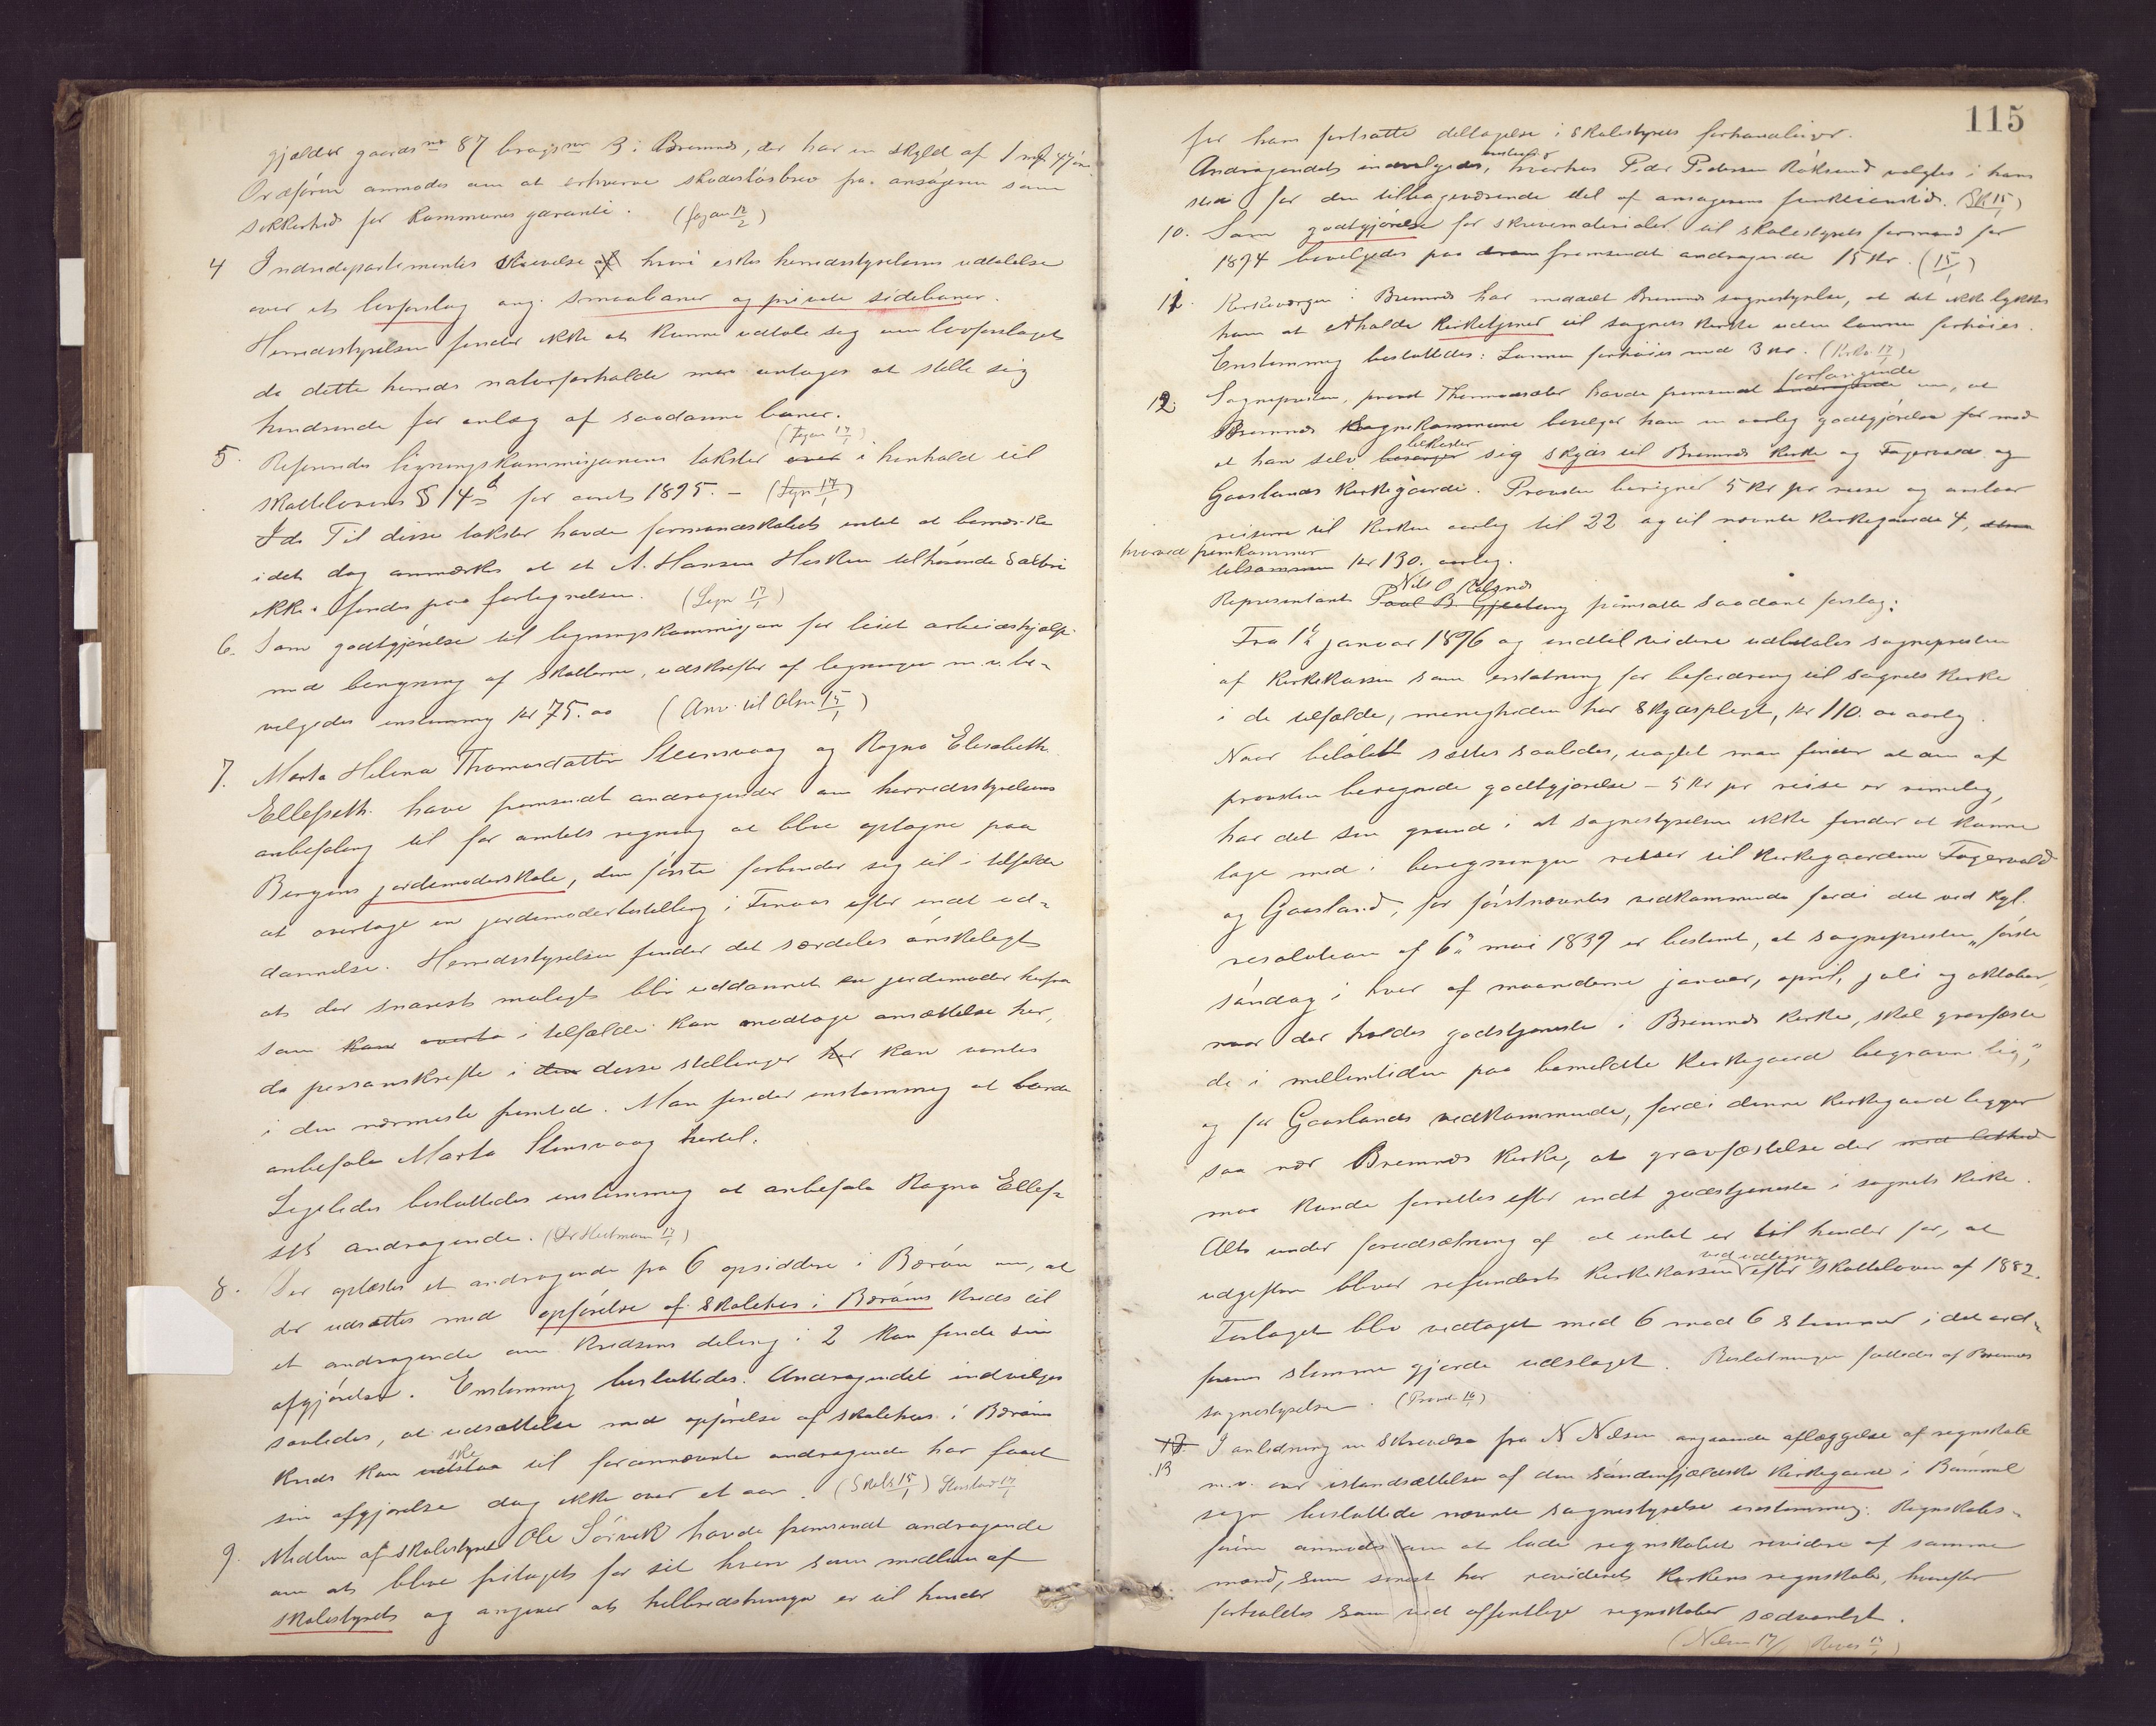 gjælder gaards no 87 brugs no 3 i Bremnes, der har en skyld af 1 mk 47 øre
Ordføren anmodes om at erhverve skadesløsbrev fra ansøgeren som
sikkerhed for kommunens garanti. (fogan 12/2)
4 Indredepartementets skrivelse af hvori eskes herredsstyrelsens udtalelse
over et lovforslag ang. smaabaner og private sidebaner.
Herredsstyrelsen finder ikke at kunne udtale sig om lovforslaget
da dette herreds naturforholde maa antages at stille sig
hindrende for anlæg af saadanne baner.
(Fogan 17/1)
5. Refereredes ligningskommisjonens takster over i henhold til
skattelovens § 14 d for aaret 1895. — (Lyn 17/1)
Ids Til disse takster havde formandskabet intet at bemærke
idet dog anmærkes at et A. Hansen Hisken tilhørende salteri
ikke findes paa fortegnelsen. (Lign 17/1)
6. Som godtgjørelse til ligningskommisjon for leiet arbeidshjælp
med beregning af skatterne, udskrifter af ligningen m. v. be-
vilgedes enstemmig kr 75.00 (Anv. til Olsen 15/1)
7. Marta Helena Thomasdatter Steensvaag og Ragna Elisabeth
Ellefseth have fremsendt andragender om herredsstyrelsens
anbefaling til for amtets regning at blive optagne paa
Bergens jordemoderskole, den første forbinder sig til i tilfælde
at overtage en jordemoderbestilling i Finaas efter endt ud-
dannelse. Herredsstyrelsen finder det særdeles ønskeligt
at der snarest muligt blir uddannet en jordemoder herfra
som kan overta i tilfælde kan modtage ansættelse her,
da personskifte i den disse stillinger her kan ventes
i den nærmeste fremtid. Man finder enstemmig at burde
anbefale Marta Stensvaag hertil.
Ligeledes besluttedes enstemmig at anbefale Ragna Ellef-
seth andragende. (Dr Heitmann 17/1)
8. Der oplæstes et andragende fra 6 opsiddere i Børøen om, at
der udsættes med opførelse af skolehus i Børøens kreds til
et andragende om kredsens deling i 2 kan finde sin
afgjørelse. Enstemmig besluttedes: Andragendet indvilges
saaledes, at udsættelse med opførelse af skolehus i Børøens
ske
kreds kan udstaa til forannævnte andragende har faaet
sin afgjørelse dog ikke over et aar. (Skolest 15/1) 17/1
9. Medlem af skolestyret Ole Sørvik havde fremsendt andragende
om at blive fritaget for sit hverv som medlem af
skolestyret og angiver at helbredshensyn er til hinder
115
for hans fortsatte deltagelse i skolestyrets forhandlinger.
enstemmig
Andragendet indvilgedes, hvorhos Peder Pedersen Røksund valgtes i hans
sted for den tilbageværende del af ansøgerens funktionstid. (Sk 15/1)
10. Som godtgjørelse for skrivematerialer til skolestyrets formand for
1894 bevilgedes paa dram fremsendt andragende 15 kr. (15/1)
11. Kirkeværgen i Bremnes har meddelt Bremnes sognestyrelse, at det ikke lykkes
ham at erholde kirketjener til sognets kirke uden lønnen forhøies.
Enstemmig besluttedes: Lønnen forhøies med 3 kr. (Kirkev 17/1)
forlangende
12. Sognepresten, provst Thormodsæter havde fremsendt andragende om, at
Bremnes sognekommune bevilger ham en aarlig godtgjørelse for mod
bekoster
at han selv besørger sig skyds til Bremnes kirke og Fagervold og
Gaaslands kirkegaarde. Provsten beregner 5 kr pr reise og anslaar
reiserne til kirken aarlig til 22 og til nævnte kirkegaarde 4,
hvorved fremkommer
tilsammen kr 130. aarlig.
Nils O
Repræsentant Paul B. Gjerting fremsatte saadant forslag:
Fra 1ste januar 1896 og indtil videre udbetales sognepresten
af kirkekassen som erstatning for befordring til sognets kirke
i de tilfælde, menigheden har skydspligt, kr 110.00 aarlig.
Naar beløbet sættes saaledes, uagtet man finder at den af
provsten beregnede godtgjørelse – 5 kr pr reise er rimelig,
har det sin grund i at sognestyrelsen ikke finder at kunne
tage med i beregningen reiser til kirkegaardene Fagervold
og Gaasland, for førstnævntes vedkommende fordi det ved kgl.
resolution af 6te mai 1839 er bestemt, at sognepresten „første
søndag i hver af maanederne januar, april, juli og oktober,
naar der holdes gudstjeneste i Bremnes kirke, skal gravfæste
de i mellemtiden paa bemeldte kirkegaard begravne lig,“
og for Gaaslands vedkommende, fordi denne kirkegaard ligger
saa nær Bremnes kirke, at gravfæstelse der med lethed
maa kunde forrettes efter endt gudstjeneste i sognets kirke.
Alt under forudsætning af at intet er til hinder for, at
ved udligning
udgiften bliver refunderet kirkekassen efter skatteloven af 1882.
Forslaget blev vedtaget med 6 mod 6 stemmer idet ord-
førens stemme gjorde udslaget. Beslutningen fattedes af Bremnes
sognestyrelse. (Provst 16/1)
13. I anledning en skrivelse fra N Nilsen angaaende aflæggelse af regnskab
13 m. v. over istandsættelsen af den søndenfjeldske kirkegaard i Bømmel
sogn besluttede nævnte sognestyrelse enstemmig: Regnskabs-
føren anmodes om at lade regnskabet revidere af samme
mænd, som sidst har revideret kirkens regnskab, hvorefter
forholdes som ved offentlige regnskaber sædvanligt.
(Nilsen 17/1) (Revis 17/1)